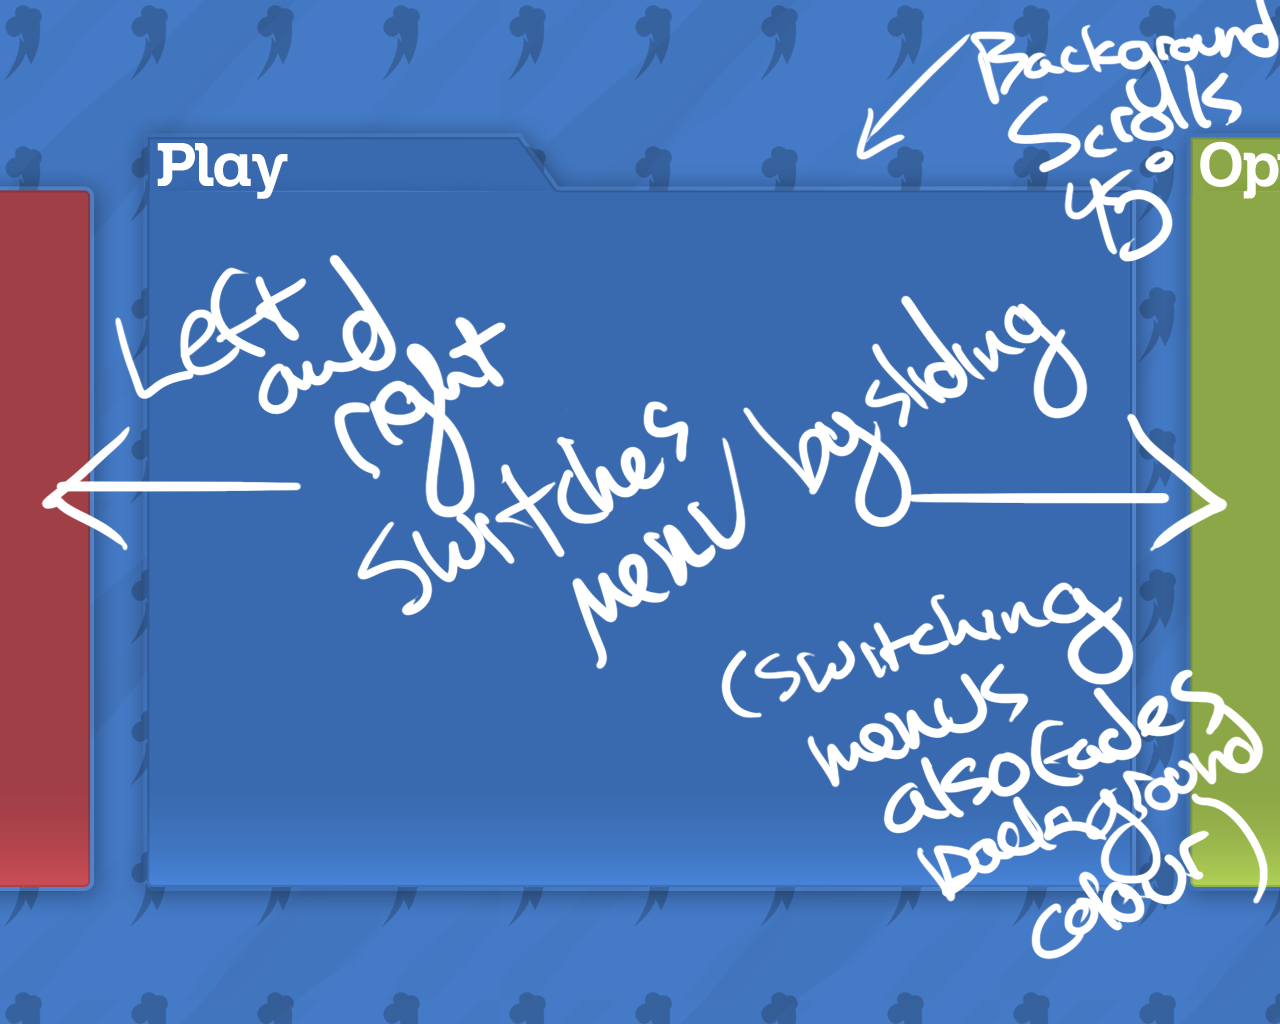 Background
Scrolls
45°
Play
Op
Left
and
right
switches
menu by sliding
(switching
menus
also fades
background
colour)